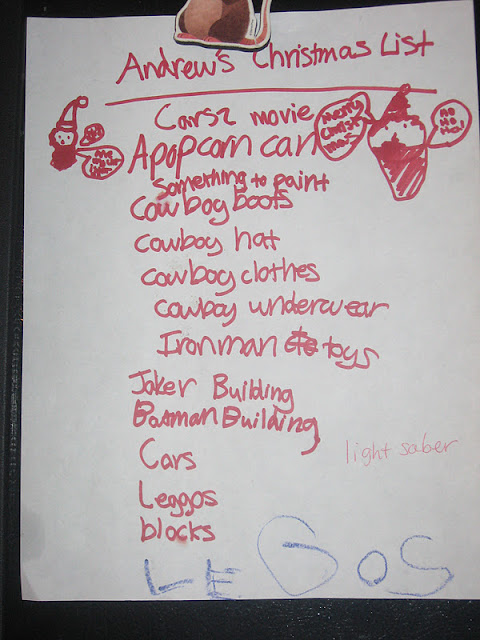 Andrew's Christmas List
Cars2 movie
A popcorn can
Merry
Christ
mas
Ho
Ho
Ho!
Something to paint
Cowboy boots
cowboy hat
cowboy clothes
cowboy underwear
Ironman toys
Joker Building
Batman Building
Cars
light saber
Leggos
blocks
LEGOS